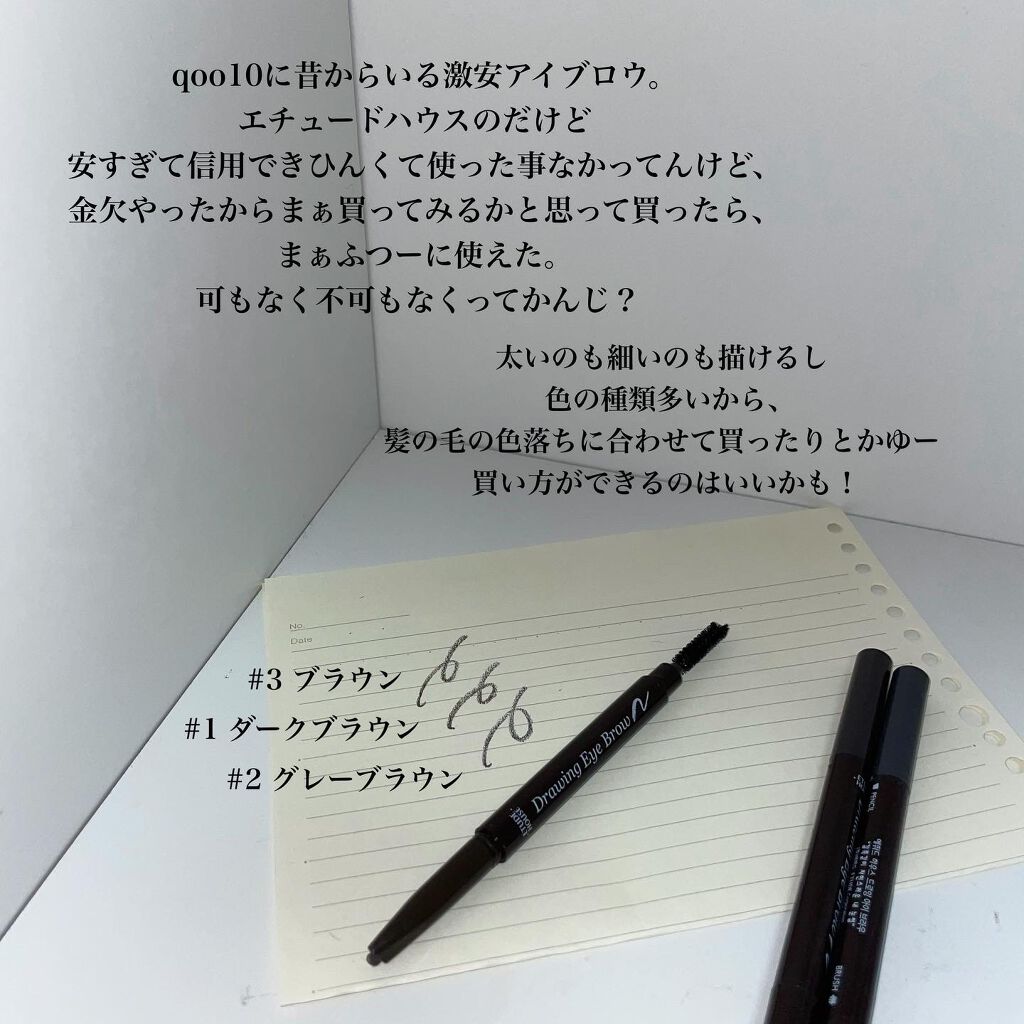 qoo10に昔からいる激安アイブロウ。
エチュードハウスのだけど
安すぎて信用できひんくて使った事なかってんけど、
金欠やったからまぁ買ってみるかと思って買ったら、
まぁふつーに使えた。
可もなく不可もなくってかんじ？
太いのも細いのも描けるし
色の種類多いから、
髪の毛の色落ちに合わせて買ったりとかゆー
買い方ができるのはいいかも！
No.
Date
#3 ブラウン
#1 ダークブラウン
#2 グレーブラウン
ETUDE
HOUSE
Drawing Eye Brow
PENCIL
에뛰드 하우스 드로잉 아이 브라우
BRUSH